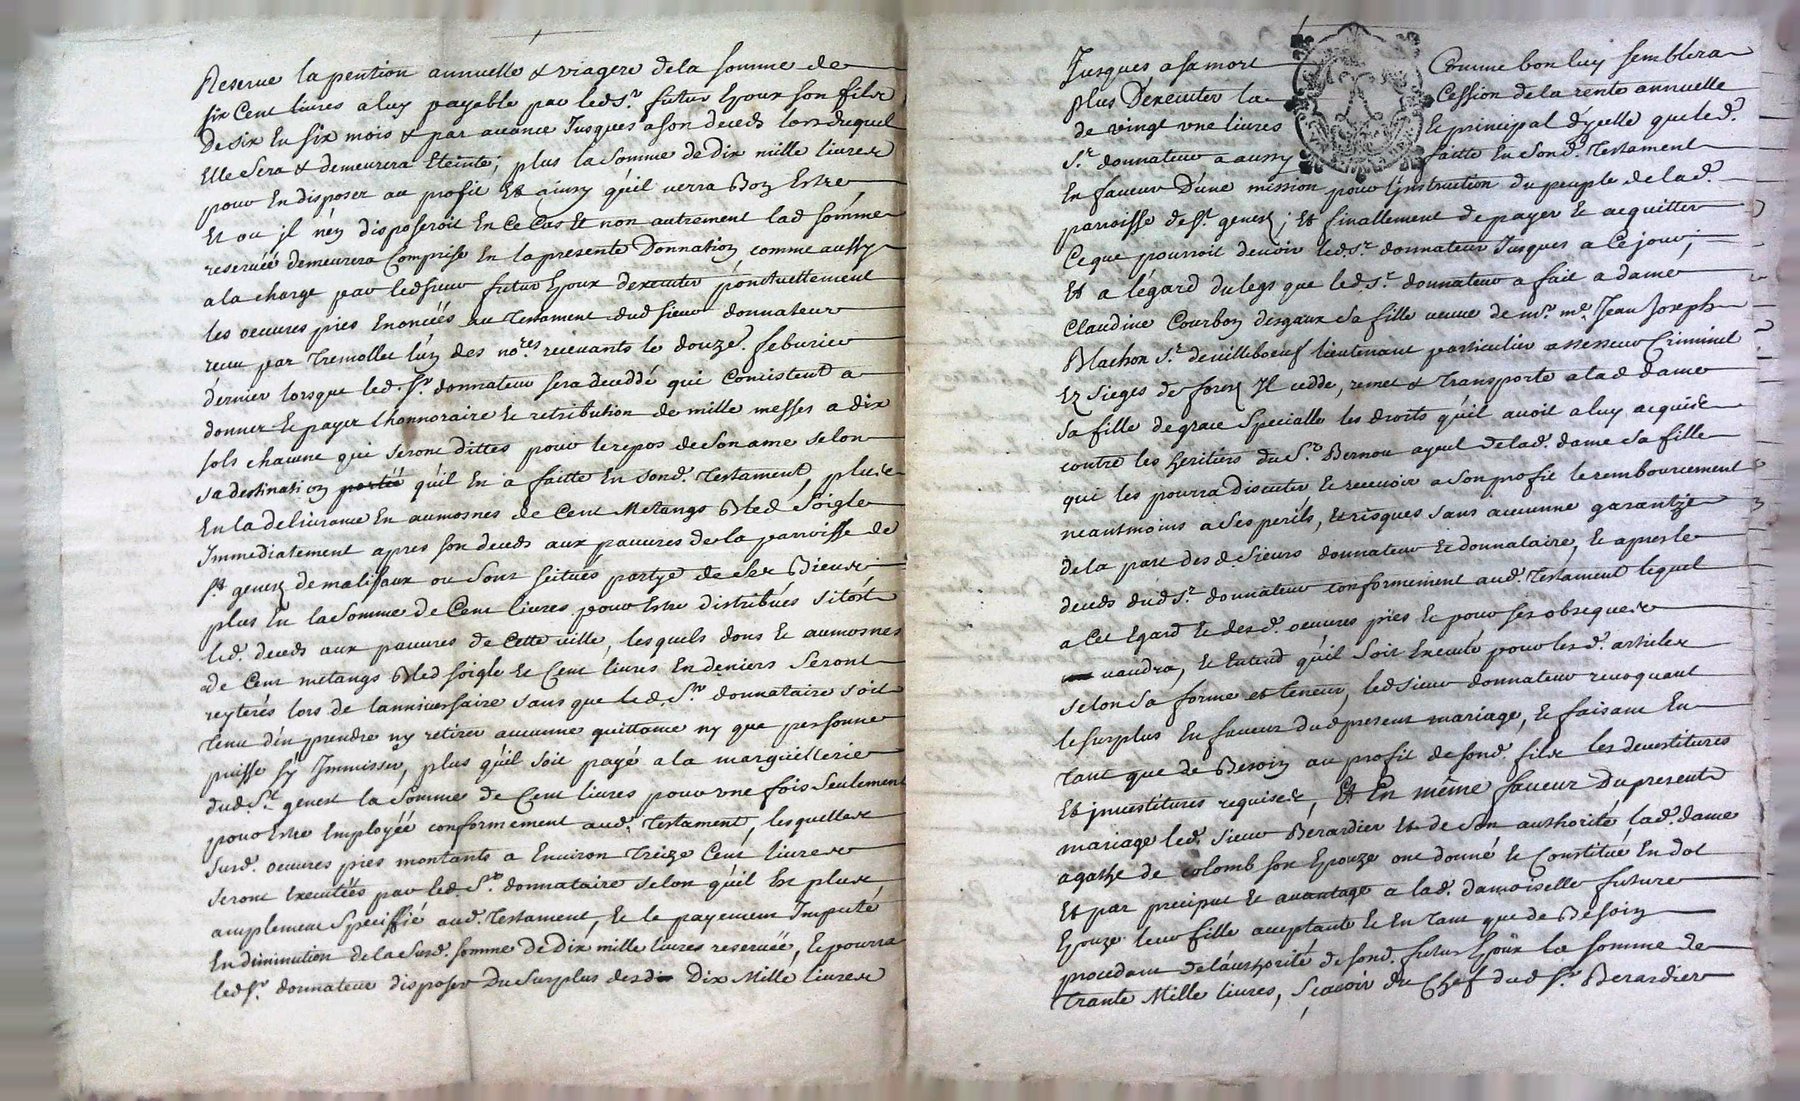 Reserve la pention annuelle & viagere dela somme de
six Cent livres a luy payable par led. Sr. futur Epoux son fils
De six En six mois & par avance Jusques a son deceds lors duquel
Elle sera & demeurera Eteinte; plus la somme de Dix mille livres
pour En disposer au profit Et ainsy qu'il verra Bon Estre
Et ou jl n'en disposeroit En Ce Cas Et non autrement lad somme
reservéé demeurera Comprise En la presente Donnation, comme aussy
a la charge par led sieur futur Epoux d'executer ponctuellement
les oeuvres pies Enoncéés au Testament dud sieur donnateur
receu par Tremollet l'un des nores. recevants le douze. feburier
dernier lorsque led. Sr. donnateur sera deceddé qui Concistent a
donner Et payer l'honnoraire Et retribution de mille messes a dix
sols chacune qui seront dittes pour le repos de son ame selon
sa destination portéé qu'il En a faitte En sond. Testament, plus
En la delivrance En aumosnes de Cent Metangs Bled Soigle
Immediatement apres son deceds aux pauvres de la parroisse de
St genest de malifaux ou sont scitues partye de ses Biens
plus En la somme de Cent livres pour Estre distribués sitost
led. deceds aux pauvres de Cette ville, lesquels dons Et aumosnes
de Cent metangs Bled soigle Et Cent livres En deniers seront
reyterés lors de lanniversaire sans que led. Sr. donnataire soit
tenu d'en prendre ny retirer aucunne quittance ny que personne
puisse sy Jmmisser, plus qu'il soit payé a la marguillerie
dud. St. genest la somme de Cent livres pour vne fois seulement
pour Estre Employéé conformement aud. Testament, lesquelles
susd. oeuvres pies montants a Environ Treize Cent livres
seront Executéés par led. Sr. donnataire selon qu'il Est plus
amplement speciffié aud. Testament, Et le payement Imputé
En diminution de la susd. somme de Dix mille livres reservéé, Et pourra
led. Sr. donnateur disposer Du surplus desd Dix Mille livres
Jusques a sa mort Comme bon luy semblera
plus D'executer la Cession de la rente annuelle
de vingt vne livres Et principal d'ycelle que led.
Sr. donnateur a aussy faitte En sond. Testament
En faveur D'une mission pour l'Jnstruction du peuple de lad.
parroisse de St. genest; Et finallement de payer Et acquitter
Ce que pourroit devoir led. Sr. donnateur Jusques a Ce jour;
Et a l'égard du legs que led. Sr. donnateur a fait a dame
Claudine Courbon desgaux sa fille veuve de mr. me. Jean Joseph
Blachon Sr. de villeboeuf lieutenant particulier assesseur Criminel
Ez sieges de forest Jl cedde, remet & transporte a lad dame
sa fille de grace Specialle les droits qu'il avoit a luy acquis
contre les heritiers du Sr. Bernou ayeul de lad. dame sa fille
qui les pourra discuter Et recevoir a son profit le remboursement
neantmoins a ses perils, Et risques sans aucunne garantye
de la part desd Sieurs donnateur Et donnataire, Et apres le
deceds dud Sr. donnateur conformement aud. Testament lequel
a Cet Egard Et desd. oeuvres pies Et pour ses obseques
vaudra, Et Entend qu'il soit Executé pour lesd. articles
selon sa forme et teneur, led sieur donnateur revoquant
le surplus En faveur dud present mariage, Et faisant En
tant que de Besoin au profit de sond. fils les devestitures
Et jnvestitures requises, Et En même faveur Du present
mariage led. sieur Berardier Et de son authorité, lad. dame
agathe de colomb son Epouze ont donné Et Constitué En dot
Et par preciput Et avantage a lad. damoiselle future
Epouze leur fille acceptante Et En tant que de Besoin
procedant De l'authorité de sond. futur Epoux la somme de
Trante Mille livres, sçavoir du Chef dud Sr. Berardier